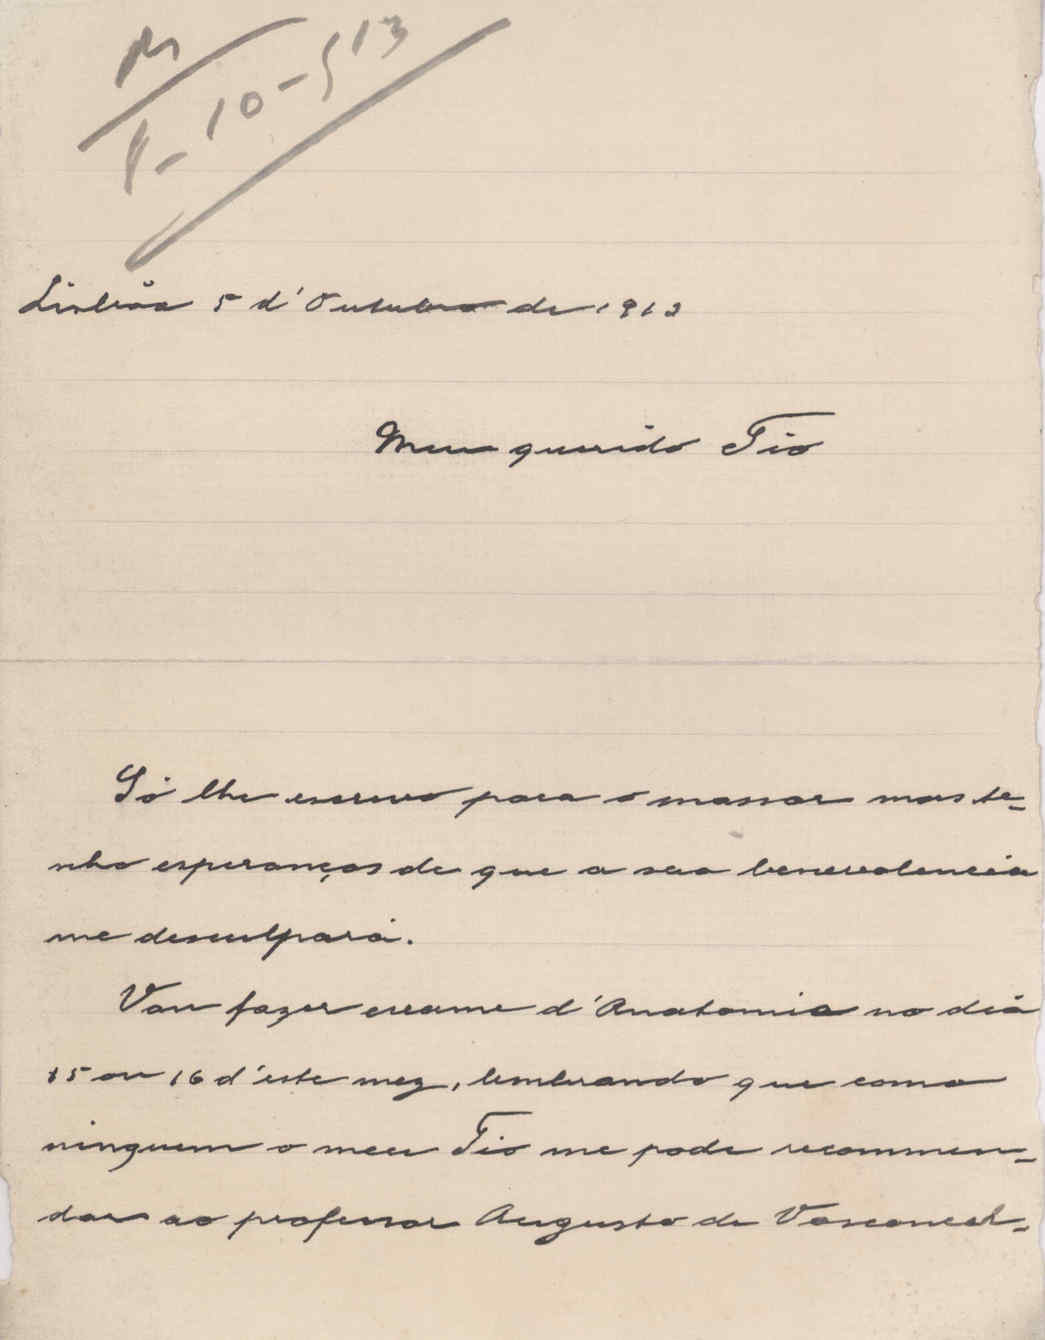 R
8-10-913
Lisbôa 5 d'Outubro de 1913
Meu querido Tio
Só lhe escrevo para o massar mas te-
nho esperanças de que a sua benevolencia
me desculpará.
Vou fazer exame d'Anatomia no dia
15 ou 16 d'este mez, lembrando que como
ninguem o meu Tio me pode recommen-
dar ao professor Augusto de Vasconcel-